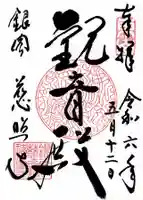 奉拝
令和六年
五月十二日
観音殿
銀閣
慈照寺